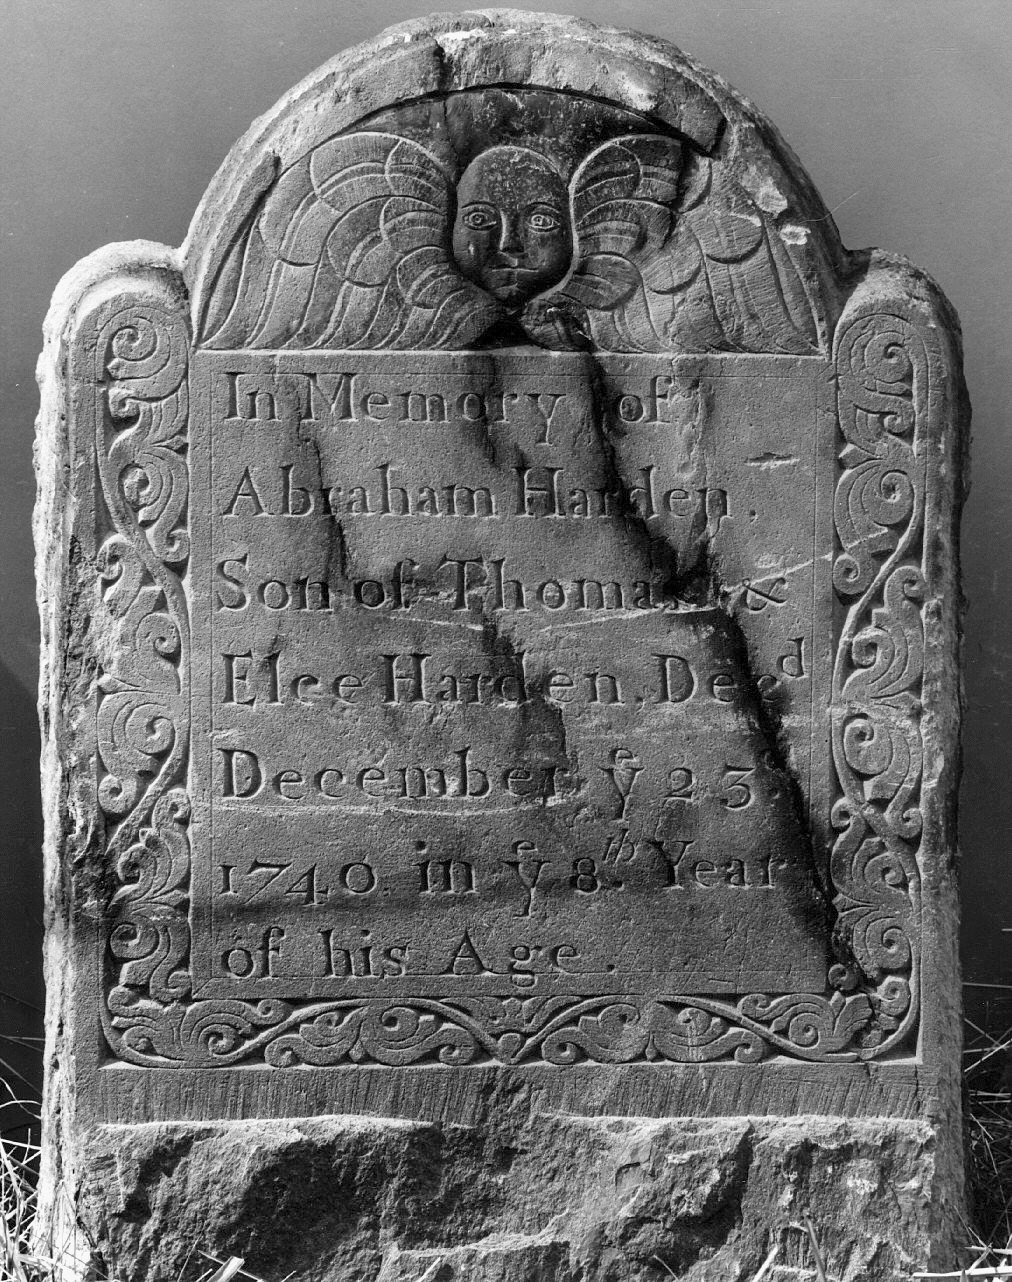 In Memory of
Abraham Harden,
Son of Thomas &
Elce Harden, Decᵈ
December yᵉ 23
1740 in yᵉ 8ᵗʰ Year
of his Age.